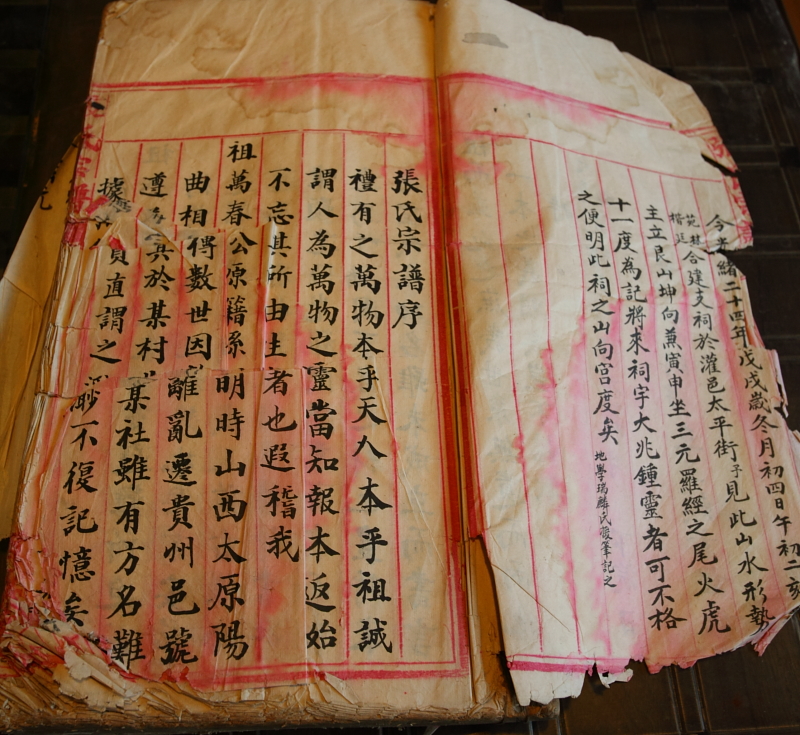 今光緒二十四年戊戌歲冬月初四日午初二亥
合建支祠於灌邑太平街予見此山水形勢
主立艮山坤向蒹寅申坐三元羅經之尾火虎
十一度為記將來祠宇大兆鍾靈者可不格
之便明此祠之山向宮度矣 地學瑞麟氏發筆記之
張氏宗譜序
禮有之萬物本乎天人本乎祖誠
謂人為萬物之靈當知報本返始
不忘其所由生者也遐稽我
祖萬春公原籍系明時山西太原陽
曲相傳數世因離亂遷貴州邑號
遵義其於某村某社雖有方名難
據直謂之渺不復記憶矣